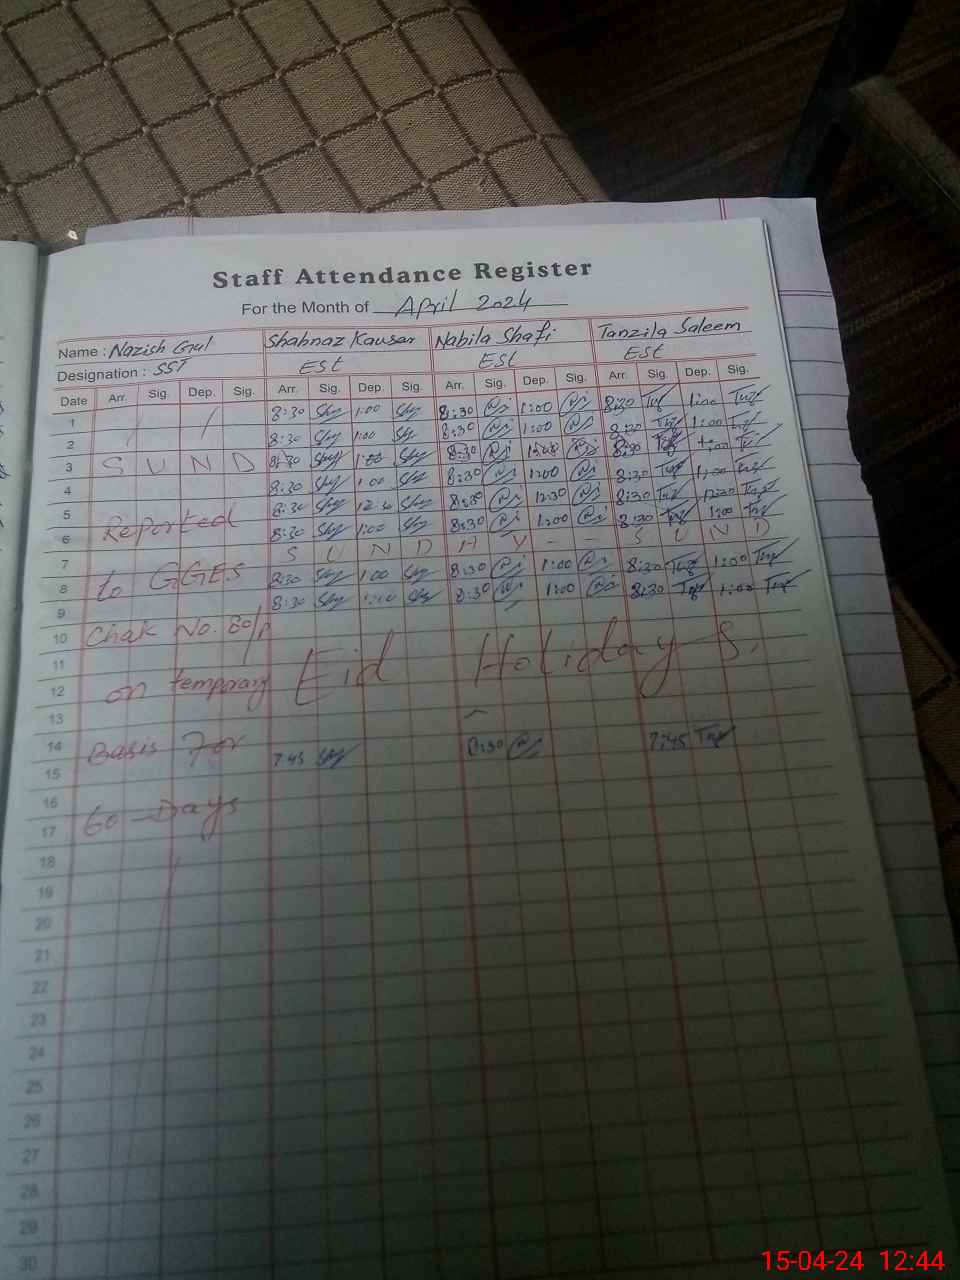 Staff Attendance Register
For the Month of April 2024
Name : Nazish Gul Shahnaz Kausar Nabila Shafi Tanzila Saleem
Designation : SST Est Est Est
Date Arr. Sig. Dep. Sig. Arr. Sig. Dep. Sig. Arr. Sig. Dep. Sig. Arr. Sig. Dep. Sig.
1 8:30 1:00 8:30 1:00 8:30 1:00
2 8:30 1:00 8:30 1:00 8:30 1:00
3 S U N D 8:30 1:00 8:30 8:30
4 8:30 1:00 8:30 1:00 8:30 1:00
5 Reported 8:30 8:30 12:30 8:30 12:30
6 8:30 1:00 8:30 1:00 8:30 1:00
7 S U N D A Y - - S U N D
8 to GGES 8:30 1:00 8:30 1:00 8:30 1:00
9 8:30 1:00 8:30 1:00 8:30 1:00
10 Chak No. 80/P
11 Eid Holidays.
12 on temporary
13
14 Basis For
15 7:45 8:30 7:45
16
17 60 - Days
18
19
20
21
22
23
24
25
26
27
28
29
30
15-04-24 12:44